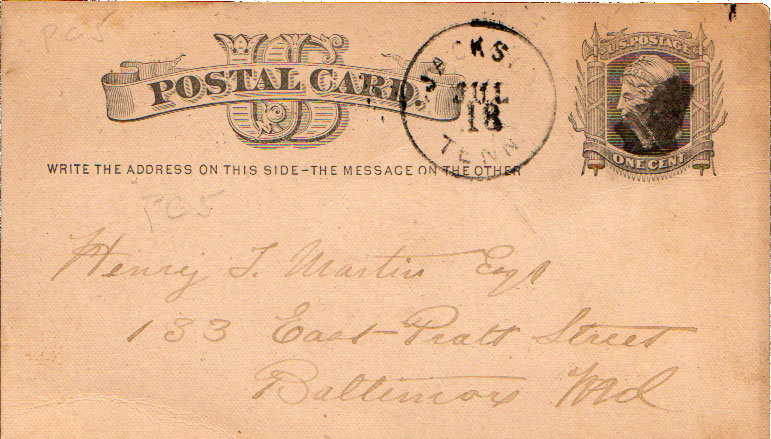 PC5
US
POSTAL CARD.
JACKS
JUL
18
TENN
U.S. POSTAGE
ONE CENT
WRITE THE ADDRESS ON THIS SIDE–THE MESSAGE ON THE OTHER
PC5
Henry T. Martin Esq
133 East Pratt Street
Baltimore Md